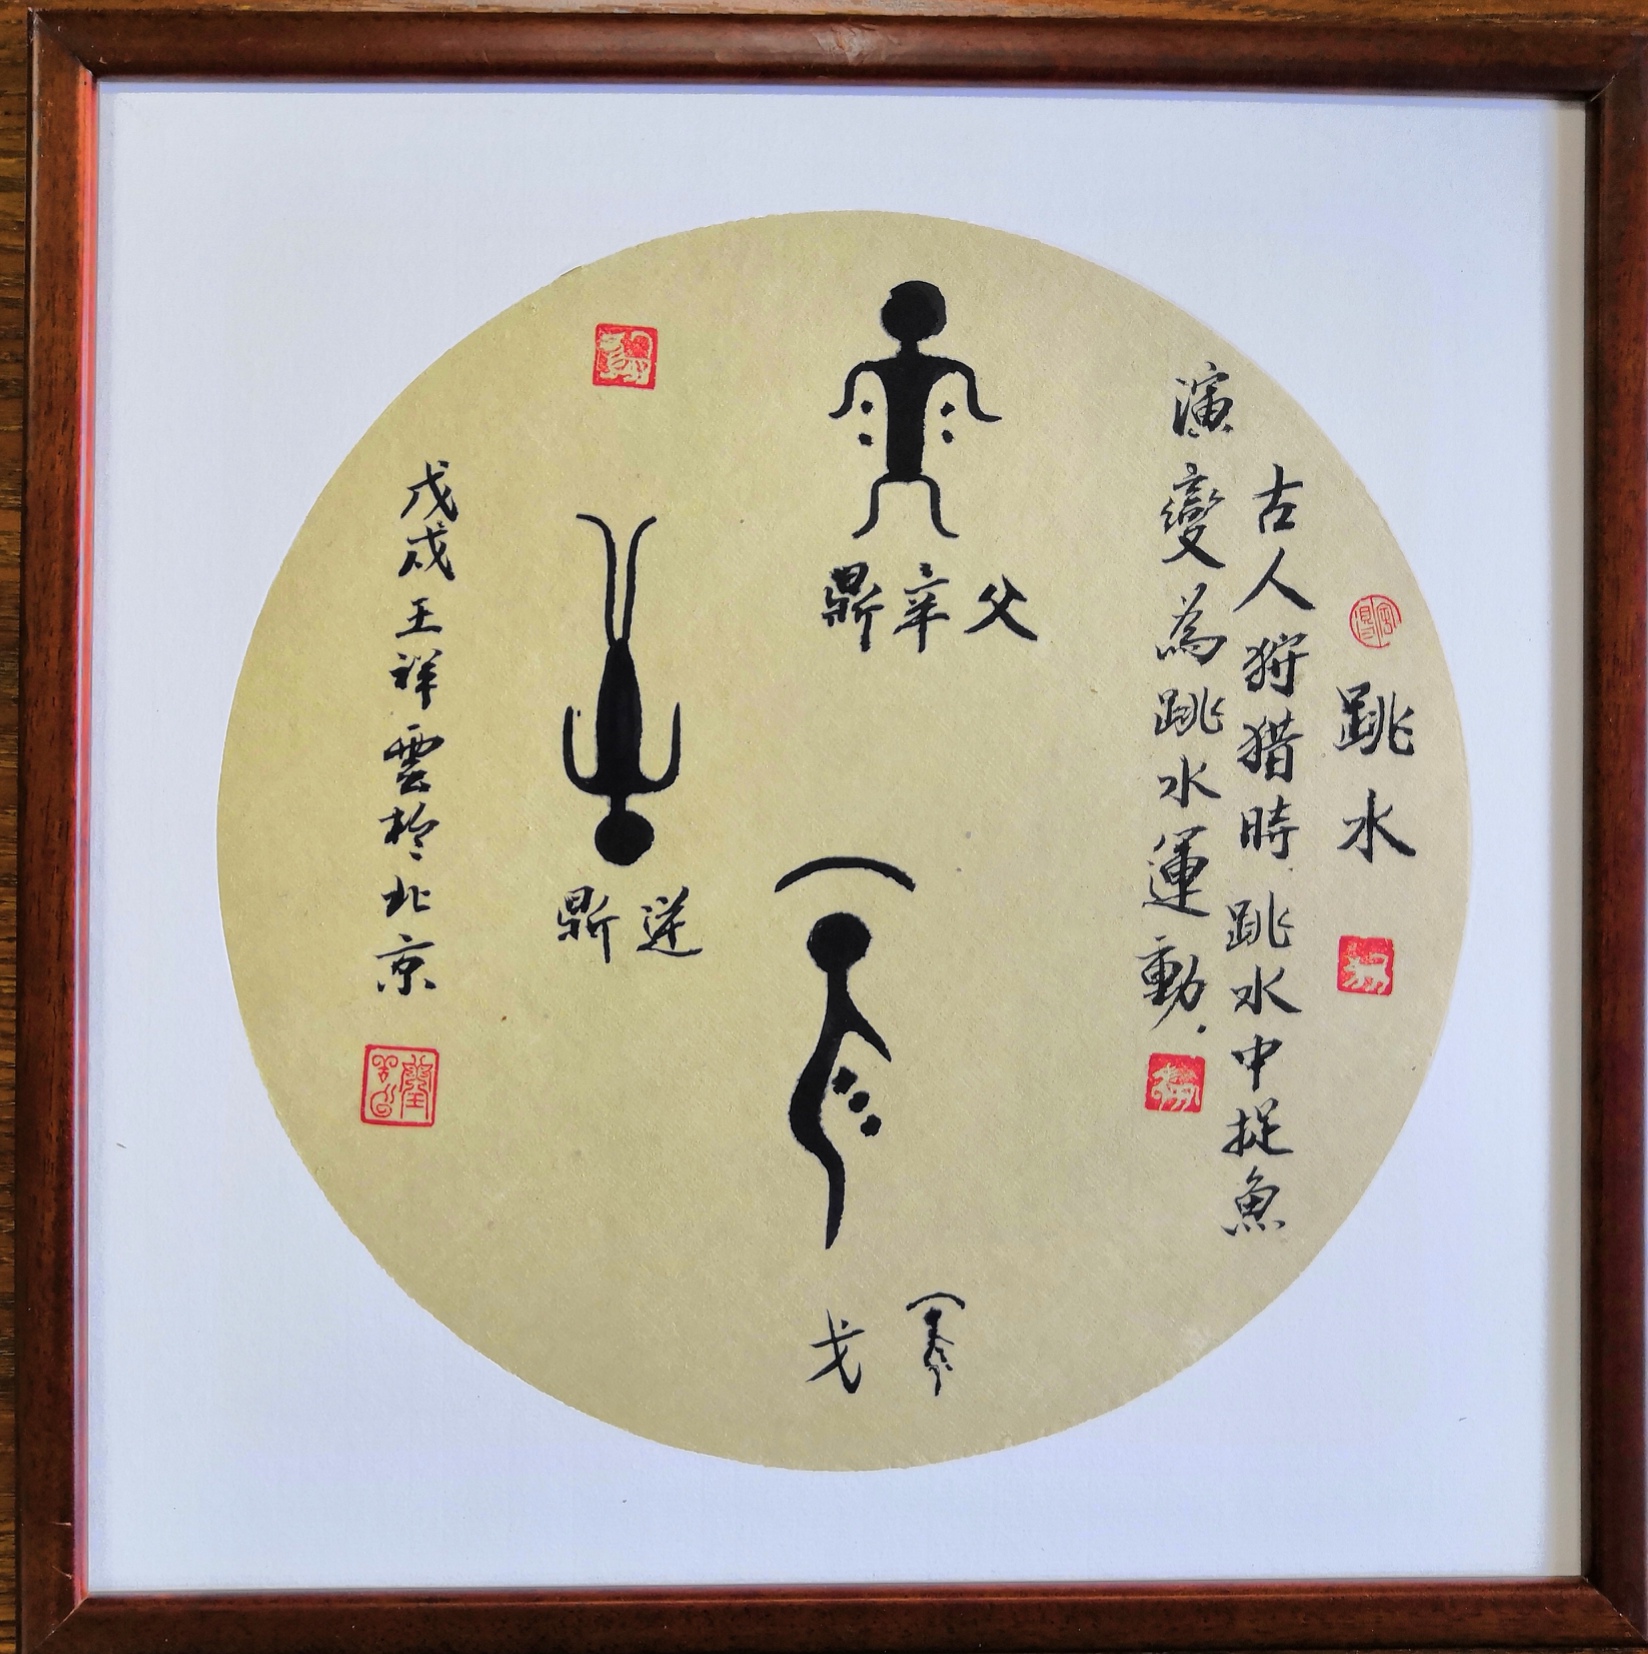 跳水
古人狩猎時跳水中捉魚
演變為跳水運動
父辛鼎
逆鼎
戈
戊戌王祥雲於北京